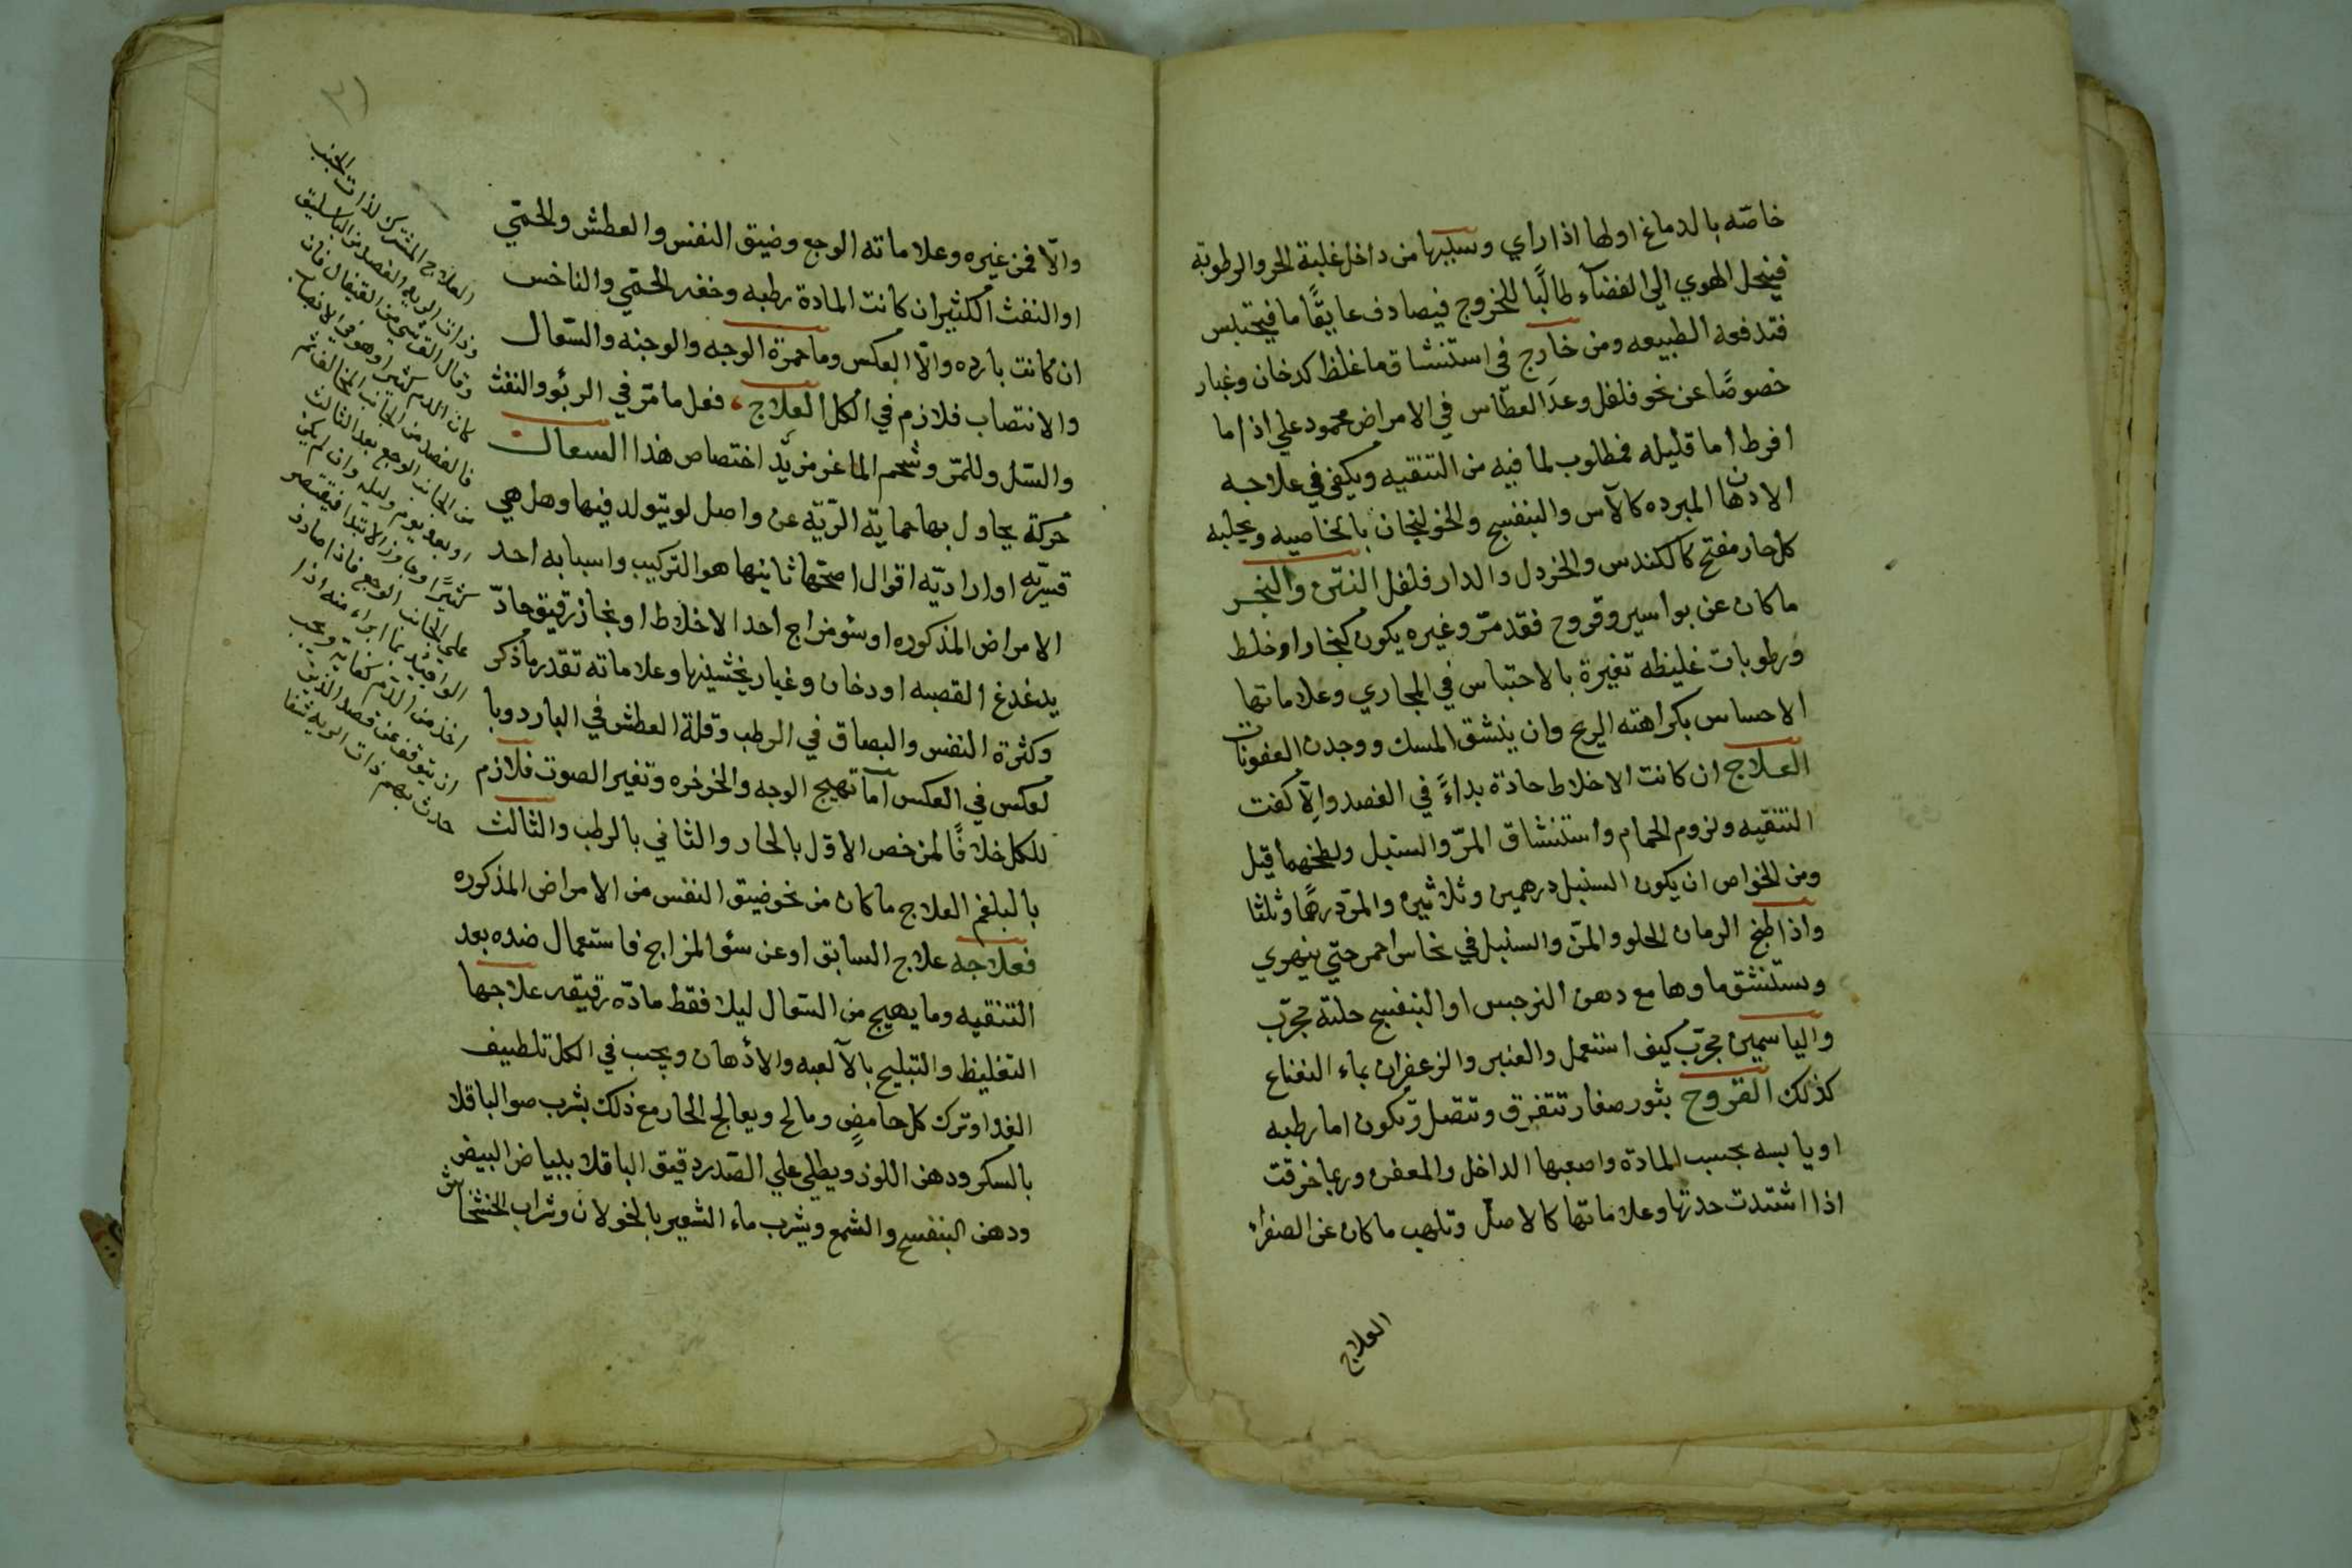 خاصّه بالدماغ اولها اذا راي وسببها من داخل غلبة الحر والرطوبة
فينحل الهوي الي الفضآء طالبًا للخروج فيصادف عايقًا ما فيحتبس
فتدفعه الطبيعه ومن خارج في استنشاق ما غلظ كدخان وغبار
خصوصًا عن نحو فلفل وعدَ العطّاس في الامراض محمود علي اذا ما
افرط اما قليله فمطلوب لما فيه من التنقيه ويكفي في علاجه
الادهان المبرده كالآس والبنفسج والخولنجان بالخاصيه ويجلبه
كل حار مفتح كالكندس والخردل والدار فلفل النتن والبخر
ما كان عن بواسير وقروح فقد مرّ وغيره يكون كبخار او خلط
ورطوبات غليظه تغيرة بالاحتباس في المجاري وعلاماتها
الاحساس بكراهته الريح وان ينشق المسك ووجدن العفونات
العلاج ان كانت الاخلاط حادة بداءً في الفصد والّا كفت
التنقيه ولزوم الحمام واستنشاق المرّ والسنبل ولطخهما قيل
ومن الخواص ان يكون السنبل درهمين وثلاثين والمرّ درهمًا وثلثا
واذا طبخ الرمان الحلو والمرّ والسنبل في نحاس احمر حتي ينهري
وستنشق ماوها مع دهن النرجس او البنفسج حلته مجرّب
والياسمين مجرّب كيف استعمل والعنبر والزعفران بماء النعناع
كذلك القروح بثور صغار تتفرق وتتصل وتكون اما رطبه
او يابسه بحسب المادة واصعبها الداخل والمعفن وربما خرقت
اذا اشتدت حدتها وعلاماتها كالاصل وتلهب ما كان عن الصفراء
العلاج
والّا فمن غيره وعلاماته الوجع وضيق النفس والعطش والحمّي
او النفث الكثير ان كانت المادة رطبه وخفه الحمّي والناخس
ان كانت بارده والّا بالعكس وما حمرة الوجه والوجنه والسّعال
والانتصاب فلازم في الكل العلاج فعل ما مرّ في الربو والنفث
والسّل وللمرّ وشحم الماعز مزيد اختصاص هذا السعال
حركة يحاول بها حماية الرّيّة عن واصل لو يتولد فيها وهل هي
قسريّه او اراديّه اقوال اصحّها ثانيها هو التركيب واسبابه احد
الامراض المذكوره او سو مزاج احد الاخلاط او بخار رقيق حادّ
يدغدغ القصبه او دخان وغبار يخشينها وعلاماته تقدر ما ذكر
وكثرة النفس والبصاق في الرطب وقلة العطش في البارد وبا
لعكس في العكس امآ تهيج الوجه والخرخره وتغير الصوت فلازم
للكل خلافًا لمن خص الاوّل بالحار والثاني بالرطب والثالث
بالبلغم العلاج ما كان من نحو ضيق النفس من الامراض المذكوره
فعلاجه علاج السابق او عن سؤ المزاج فاستعمال ضده بعد
التنقيه وما يهيج من السّعال ليلا فقط مادّه رقيقه علاجها
التغليظ والتبليج بالآلعبه والادهان ويجب في الكل تلطييف
الغدا وترك كل حامضٍ ومالح ويعالج الحار مع ذلك بشرب صو الباقلا
بالسكر ودهن اللوز ويطلي علي الصّدر دقيق الباقلا ببياض البيض
ودهن البنفسج والشمع ويشرب ماء الشعير بالخولان وشراب الخشخاش
العلاج المشترك لذات الجنب
وذات الريه الفصد من الباسليق
وقال القرشي من القيفال فان
كان الدم كثيرا وهو في الانصباب
فالفصد من الجانب المخالف ثم
من الجانب الوجع بعد الثالث
او بعد يوم وليله وان لم يكن
كثيرًا وجاوز الابتدا فيقتصر
علي الجانب الوجع فاذا صادف
ابراء منه اذا
اخذ من الدم كفايه ويجب
ان يتوقف عن فصد الذين
حدث بهم ذات الريه